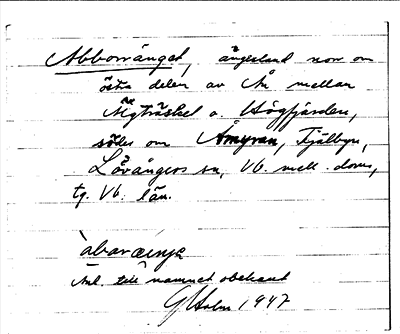 Abborränget, ängesland norr om
östra delen av Ån mellan
Älgträsket o. Högfjärden,
söder om Åmyran, Fjälbyn,
Lövångers sn, Vb. mell. doms,
tg. Vb. län.
abaræŋjə
Anl. till namnet obekant
G Holm 1947